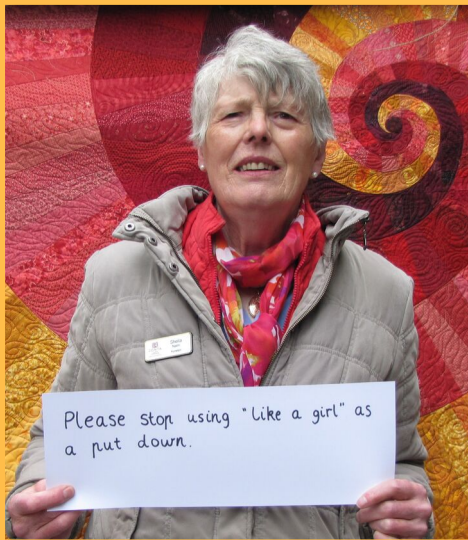 Please stop using "like a girl" as
a put down.